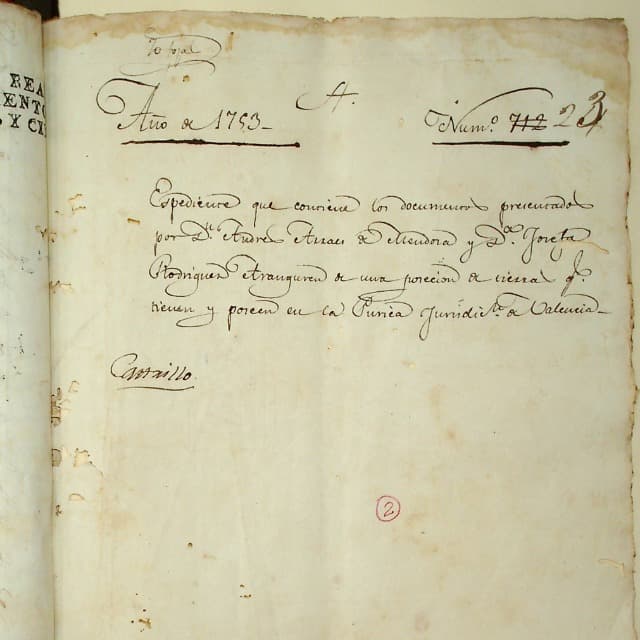 REA
ENTO
Y CI
A.
Año de 1753-
Num.º 712 23
Expediente que contiene los documentos presentados
por Dn. Andres Arraes de Mendoza y Dª. Josefa
Rodriguez Aranguren de una posecion de tierras q.
tienen y poseen en la Jurisdicn. de Valencia-
Castrillo.
2